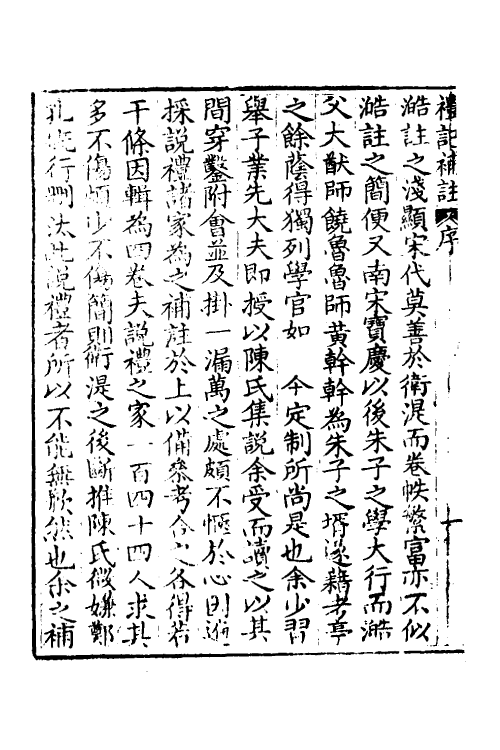 禮記補註 序
澔註之淺顯宋代莫善於衛湜而卷帙繁富亦不似
澔註之簡便又南宋寶慶以後朱子之學大行而澔
父大猷師饒魯魯師黃幹幹為朱子之壻遂藉考亭
之餘蔭得獨列學官如 今定制所尚是也余少習
舉子業先大夫即授以陳氏集說余受而讀之以其
間穿鑿附會並及掛一漏萬之處頗不愜於心因遍
採說禮諸家為之補註於上以備參考合之各得若
干條因輯為四卷夫說禮之家一百四十四人求其
多不傷煩少不傷簡則衛湜之後斷推陳氏微嫌鄭
孔 行刪汰此說禮者所以不能無歉然也余之補